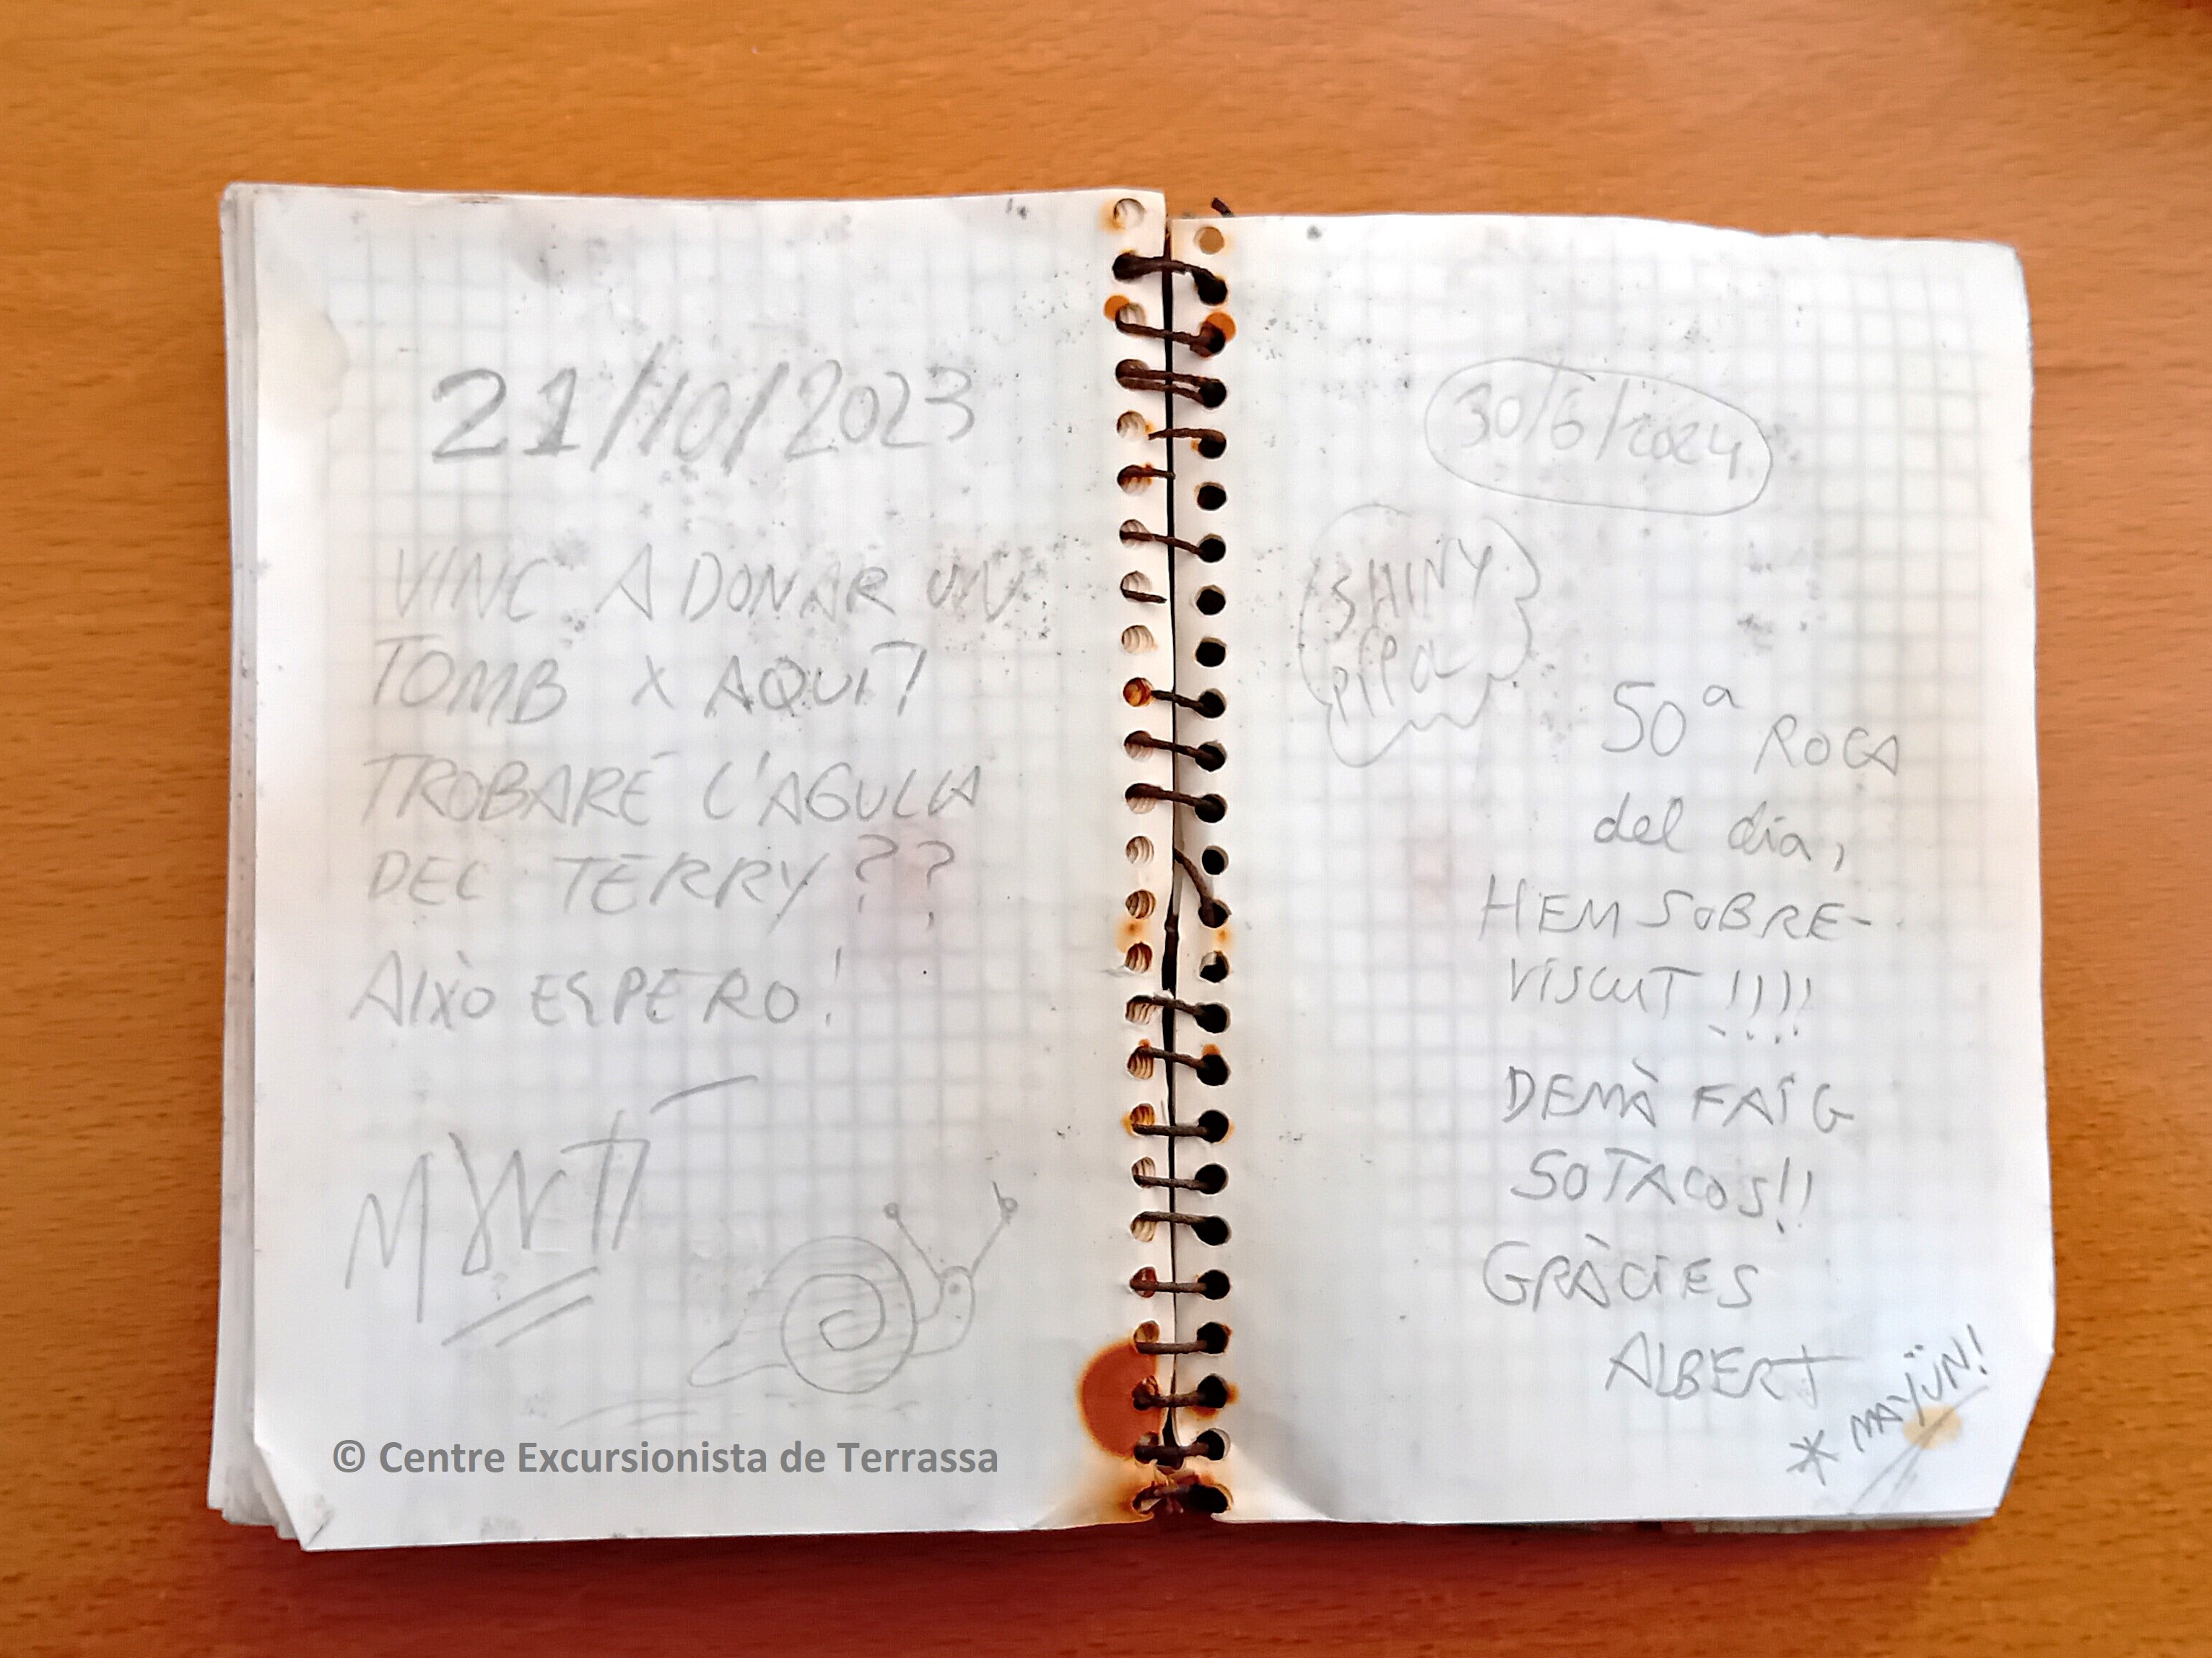 21/10/2023
VINC A DONAR UN
TOMB X AQUI
TROBARÉ L'AGULLA
DEL TERRY??
AIXÒ ESPERO!
30/6/2024
SHINY
PIPOL
50ª ROCA
del dia,
HEM SOBRE-
VISCUT !!!!
DEMÀ FAIG
50 TACOS!!
GRÀCIES
ALBERT
* MAYÜN!
© Centre Excursionista de Terrassa